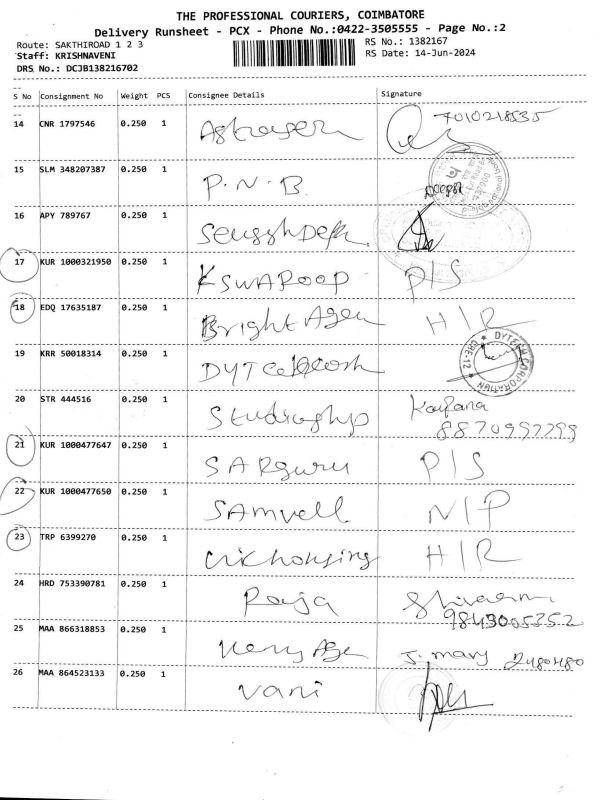 THE PROFESSIONAL COURIERS, COIMBATORE
Delivery Runsheet - PCX - Phone No.:0422-3505555 - Page No.:2
Route: SAKTHIROAD 1 2 3 RS No.: 1382167
Staff: KRISHNAVENI RS Date: 14-Jun-2024
DRS No.: DCJB138216702
S No Consignment No Weight PCS Consignee Details Signature
14 CNR 1797546 0.250 1 7010218535
15 SLM 348207387 0.250 1 P.N.B. Deepa
16 APY 789767 0.250 1
17 KUR 1000321950 0.250 1 K SWAROOP P/S
18 EDQ 17635187 0.250 1 Bright Agen H/R
19 KRR 50018314 0.250 1 DYTECH CORPORATION CBE-12
20 STR 444516 0.250 1 8870997799
21 KUR 1000477647 0.250 1 SARguru P/S
22 KUR 1000477650 0.250 1 SAmvell N/P
23 TRP 6399270 0.250 1 H/R
24 HRD 753390781 0.250 1 Raja 9843005352
25 MAA 866318853 0.250 1 J. mary 2480480
26 MAA 864523133 0.250 1 vani